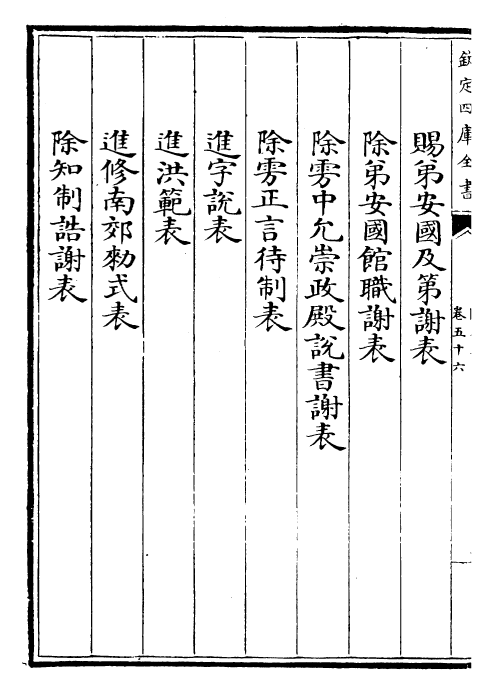 欽定四庫全書
卷五十六
賜弟安國及第謝表
除弟安國館職謝表
除雱中允崇政殿説書謝表
除雱正言待制表
進字說表
進洪範表
進修南郊勑式表
除知制誥謝表